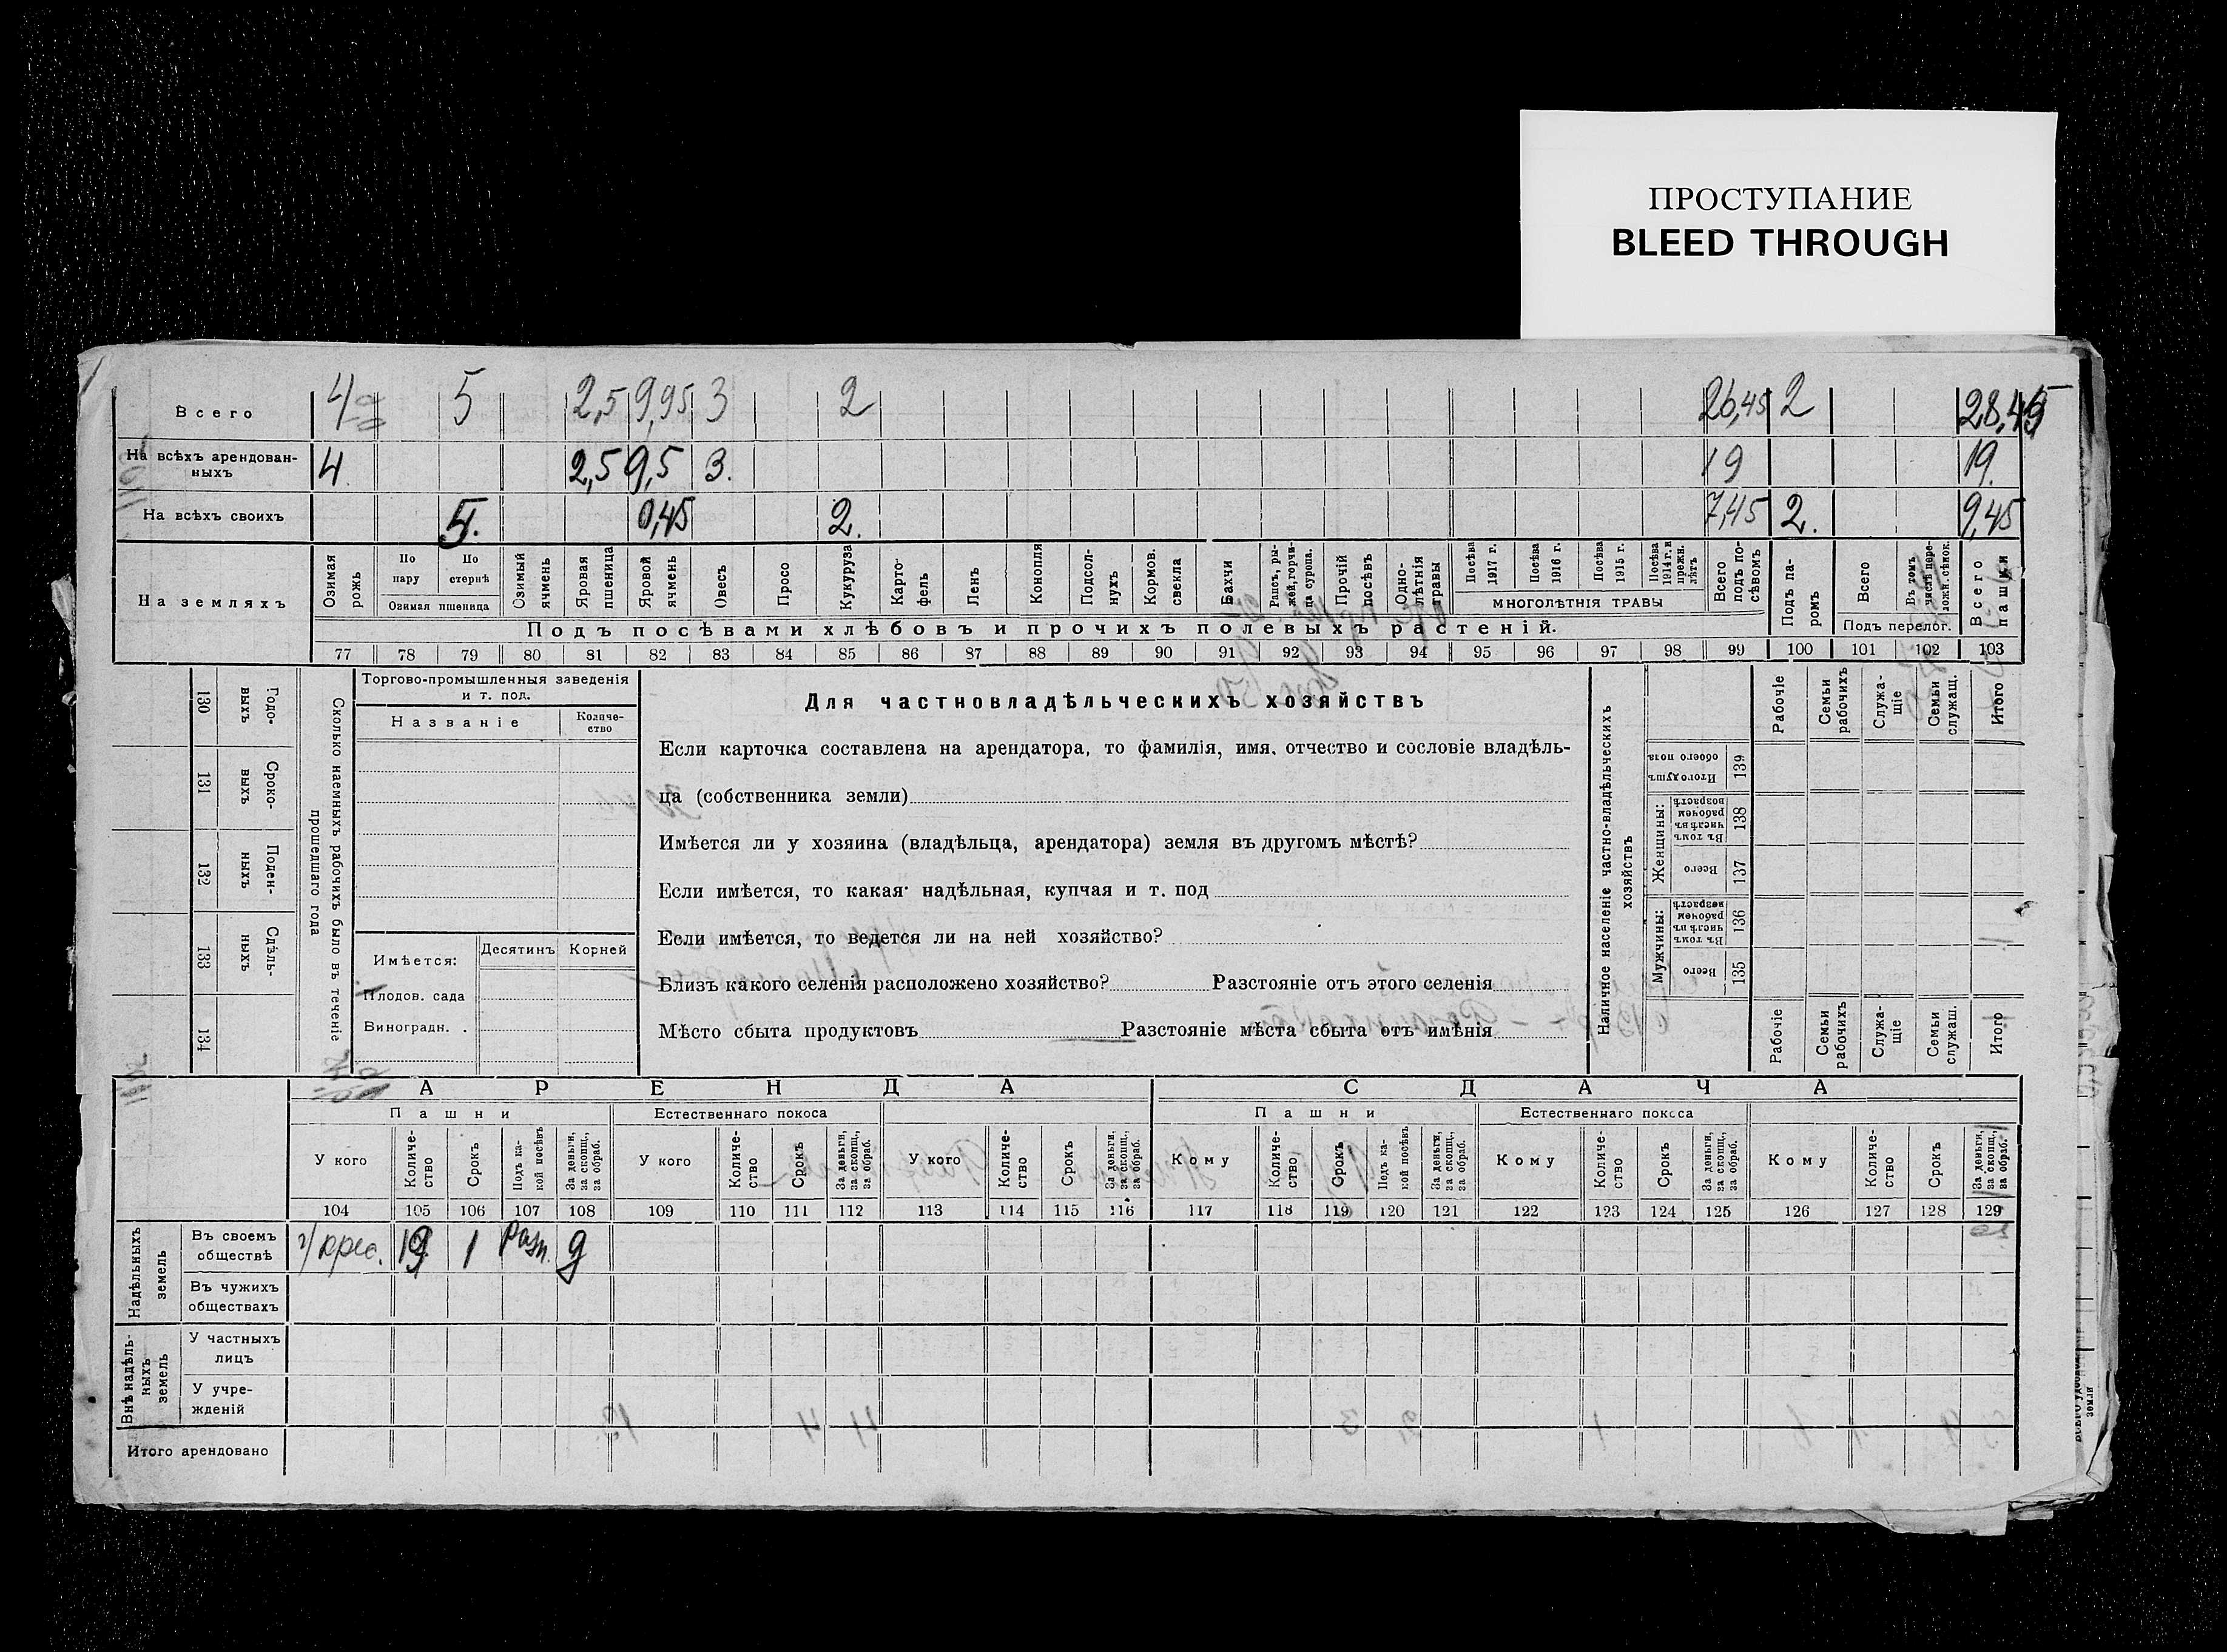 ПРОСТУПАНИЕ
BLEED THROUGH
Всего 4 5 2,5 9,95 3 2 26,45 2 28,45
На всѣхъ арендован-
ныхъ 4 2,5 9,5 3. 19 19.
На всѣхъ своихъ 5. 0,45 2. 7,45 2. 9,45
На земляхъ
Озимая рожь
По пару
По стернѣ
Озимая пшеница
Озимый ячмень
Яровая пшеница
Яровой ячмень
Овесъ
Просо
Кукуруза
Карто-
фель
Ленъ
Конопля
Подсол-
нухъ
Кормов. свекла
Бахчи
Рапсъ, ры-
жей, горчи-
ца сурепа.
Прочій посѣвъ
Одно-
лѣтнія травы
Посѣва 1917 г.
Посѣва 1916 г.
Посѣва 1915 г.
Посѣва 1914 г. и прежн. лѣтъ
МНОГОЛѢТНІЯ ТРАВЫ
Всего подъ по-
сѣвомъ
Подъ па-
ромъ
Всего
Въ томъ числѣ пере-
ложн. сѣнок.
Подъ перелог.
Всего пашни
Подъ посѣвами хлѣбовъ и прочихъ полевыхъ растеній.
77 78 79 80 81 82 83 84 85 86 87 88 89 90 91 92 93 94 95 96 97 98 99 100 101 102 103
130 Годо-
выхъ
131 Сроко-
выхъ
132 Поден-
ныхъ
133 Сдѣль-
ныхъ
134
Сколько наемныхъ рабочихъ было въ теченіе
прошедшаго года
Торгово-промышленныя заведенія
и т. под.
Названіе
Количе-
ство
Имѣется:
Десятинъ Корней
Плодов. сада
Виноградн. .
Для частновладѣльческихъ хозяйствъ
Если карточка составлена на арендатора, то фамилія, имя, отчество и сословіе владѣль-
ца (собственника земли)
Имѣется ли у хозяина (владѣльца, арендатора) земля въ другомъ мѣстѣ?
Если имѣется, то какая: надѣльная, купчая и т. под
Если имѣется, то ведется ли на ней хозяйство?
Близъ какого селенія расположено хозяйство? Разстояніе отъ этого селенія
Мѣсто сбыта продуктовъ Разстояніе мѣста сбыта отъ имѣнія
Наличное населеніе частно-владѣльческихъ
хозяйствъ
Рабочіе
Семьи рабочихъ
Служа-
щіе
Семьи служащ.
Итого
Итого душъ обоего пола 139
Женщины:
Въ томъ числѣ въ рабочемъ возрастѣ 138
Всего 137
Мужчины:
Въ томъ числѣ въ рабочемъ возрастѣ 136
Всего 135
Рабочіе
Семьи рабочихъ
Служа-
щіе
Семьи служащ.
Итого
АРЕНДА СДАЧА
Пашни Естественнаго покоса Пашни Естественнаго покоса
У кого
Количе-
ство
Срокъ
Подъ ка-
кой посѣвъ
За деньги, за скопщ., за обраб.
У кого
Количе-
ство
Срокъ
За деньги, за скопщ., за обраб.
У кого
Количе-
ство
Срокъ
За деньги, за скопщ., за обраб.
Кому
Количе-
ство
Срокъ
Подъ ка-
кой посѣвъ
За деньги, за скопщ., за обраб.
Кому
Количе-
ство
Срокъ
За деньги, за скопщ., за обраб.
Кому
Количе-
ство
Срокъ
За деньги, за скопщ., за обраб.
104 105 106 107 108 109 110 111 112 113 114 115 116 117 118 119 120 121 122 123 124 125 126 127 128 129
Надѣльныхъ земель
Въ своемъ
обществѣ 19 1 Разн. д
Въ чужихъ
обществахъ
Внѣ надѣль-
ныхъ земель
У частныхъ
лицъ
У учре-
жденій
Итого арендовано
земли